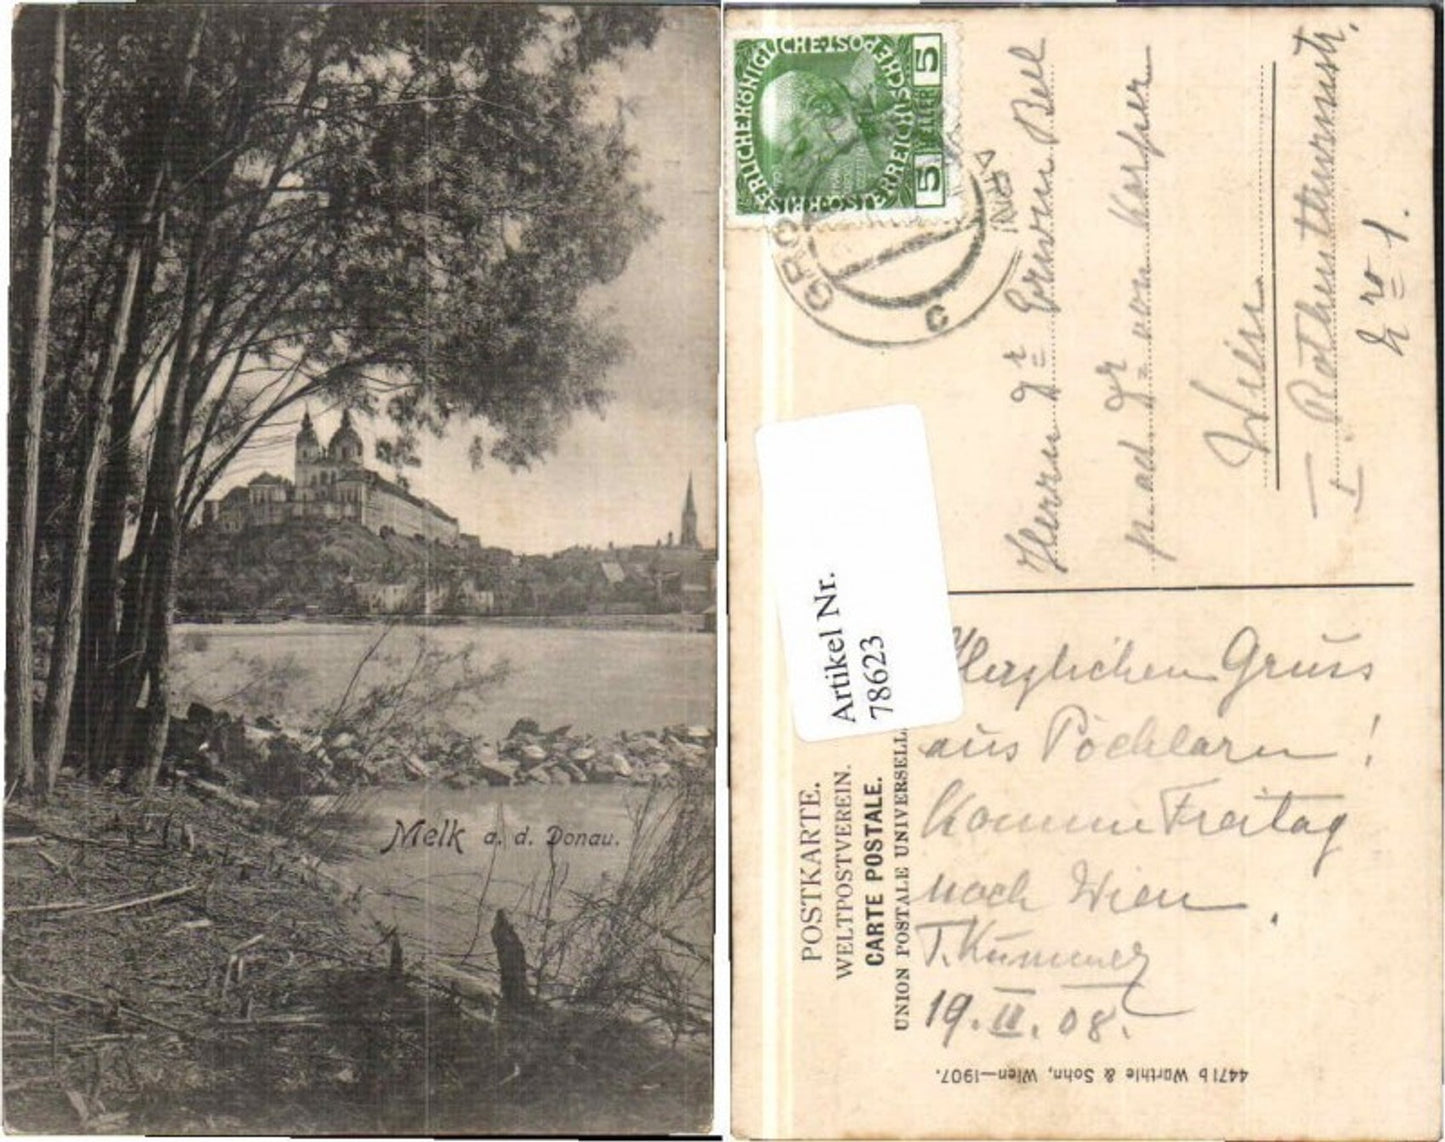 Melk a. d. Donau.
KAISERLICHEKÖNIGLICHE
ÖSTERREICHISCHE POST
5 HELLER 5
GRO
c
Herrn Dr Erwein Bell
p. ad. Dr von Karper
Wien
I Rothenthurmstr.
No 1.
Artikel Nr.
78623
POSTKARTE.
WELTPOSTVEREIN.
CARTE POSTALE.
UNION POSTALE UNIVERSELL
Herzlichen Gruss
aus Pöchlarn!
Komme Freitag
nach Wien.
T. Kummer
19. II. 08.
4471 b Würthle & Sohn, Wien—1907.